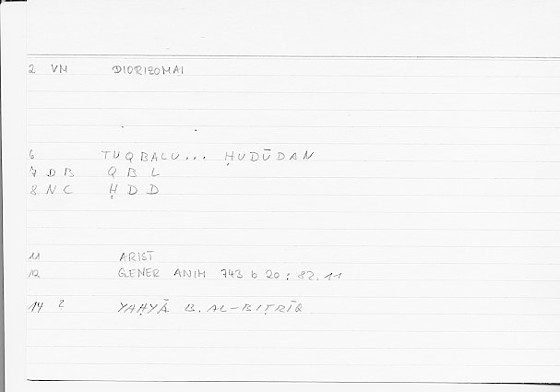 2 VM DIORIZOMAI
6 TUQBALU... ḤUDŪDAN
7 DB QBL
8 NC ḤDD
11 ARIST
12 GENER ANIM 743 b 20 : 82.11
14 2 YAḤYĀ B. AL-BIṬRĪQ